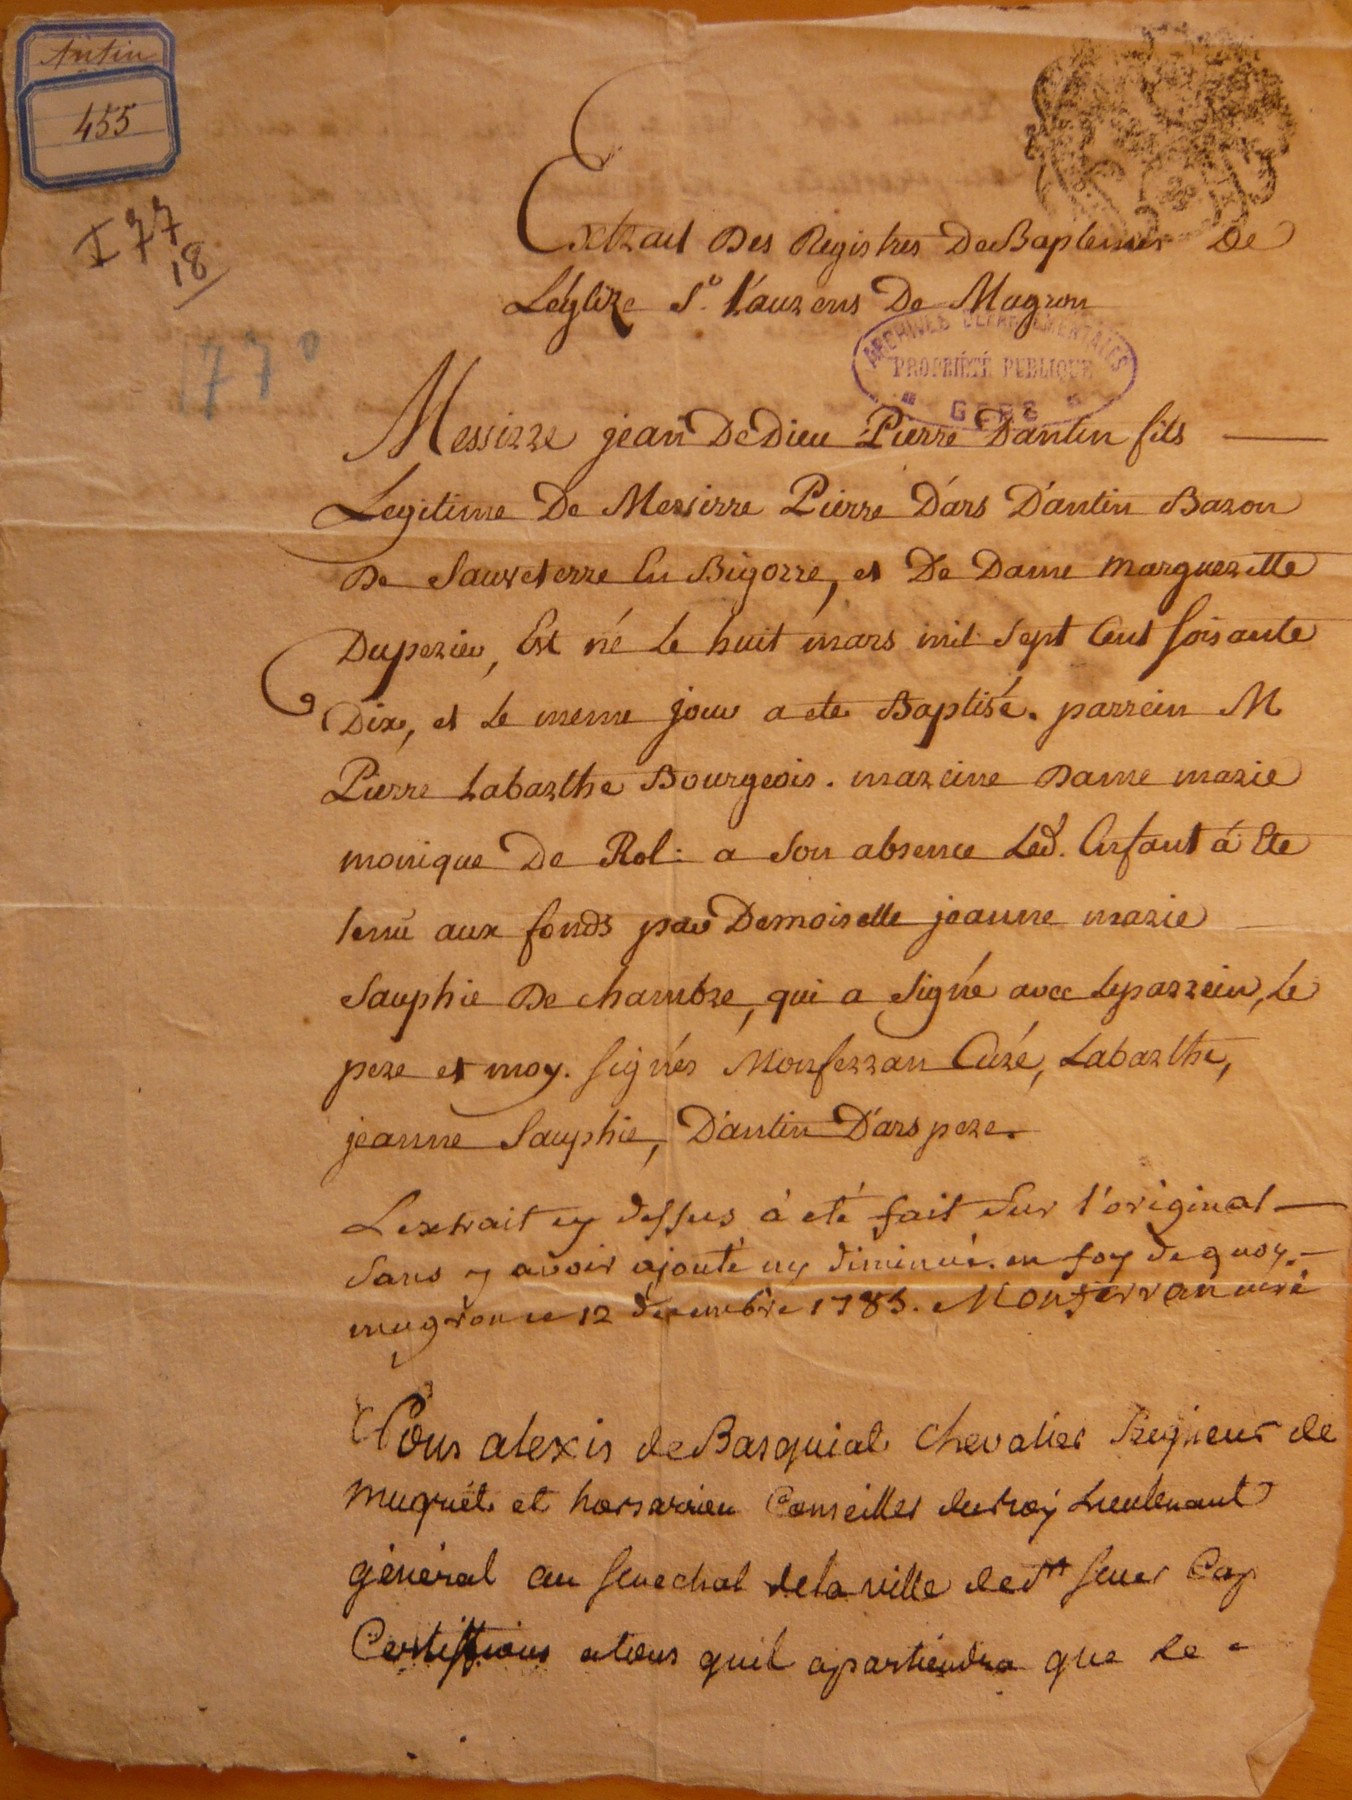 Antin
455
I 77
18
177°
Extrait Des Registres De Baptemes De
L'eglize St. Laurens De Mugron
ARCHIVES DÉPARTEMENTALES
PROPRIÉTÉ PUBLIQUE
GERS
Messirre jean De Dieu Pierre Dantin fils
Legitime De Messirre Pierre D'ars D'antin Baron
De Sauveterre En Bigorre, et De Dame Marguerette
Duperieu, Est né Le huit mars mil Sept Cent Soisante
Dix, et Le meme jour a ete Baptisé. parrein M
Pierre Labarthe Bourgeois. mareine Dame marie
monique De Rol: a Son absence Led. Enfant á Ete
tenu aux fonds par Demoiselle jeanne marie
Sauphie De chambre, qui a Signé avec Leparrein, Le
pere et moy. Signés Monferran Curé, Labarthe,
jeanne Sauphie, D'antin D'ars pere.
L'extrait cy dessus à eté fait Sur l'original
Sans y avoir ajouté ny diminué. en foy de quoy.
mugron ce 12 decembre 1783. Monferran curé
Nous alexis de Basquiat Chevalier Seigneur de
mugriet et horsarrieu Conseiller du roy Lieutenant
général au Senechal de la ville de St Sever Cap
Certiffions atous quil apartiendra que Le